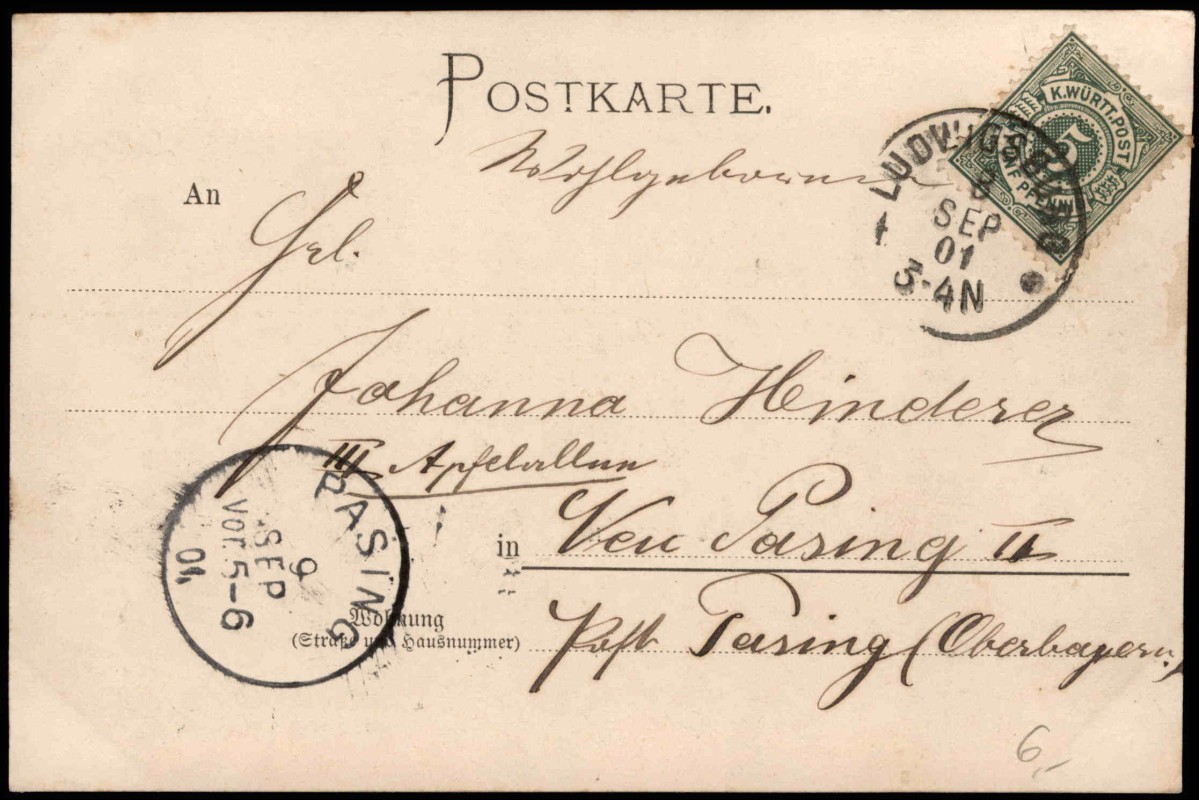 POSTKARTE.
Wohlgeboren
An Frl.
Johanna Hinderer
III Apfelallee
in Neu Pasing II
Wohnung
(Straße und Hausnummer)
Post Pasing (Oberbayern)
K.WÜRTT.POST
5
FÜNF PFENNIG
LUDWIGSBURG
8
SEP
01
3-4N
1
PASING
9
SEP
VOR.5-6
01
6,-